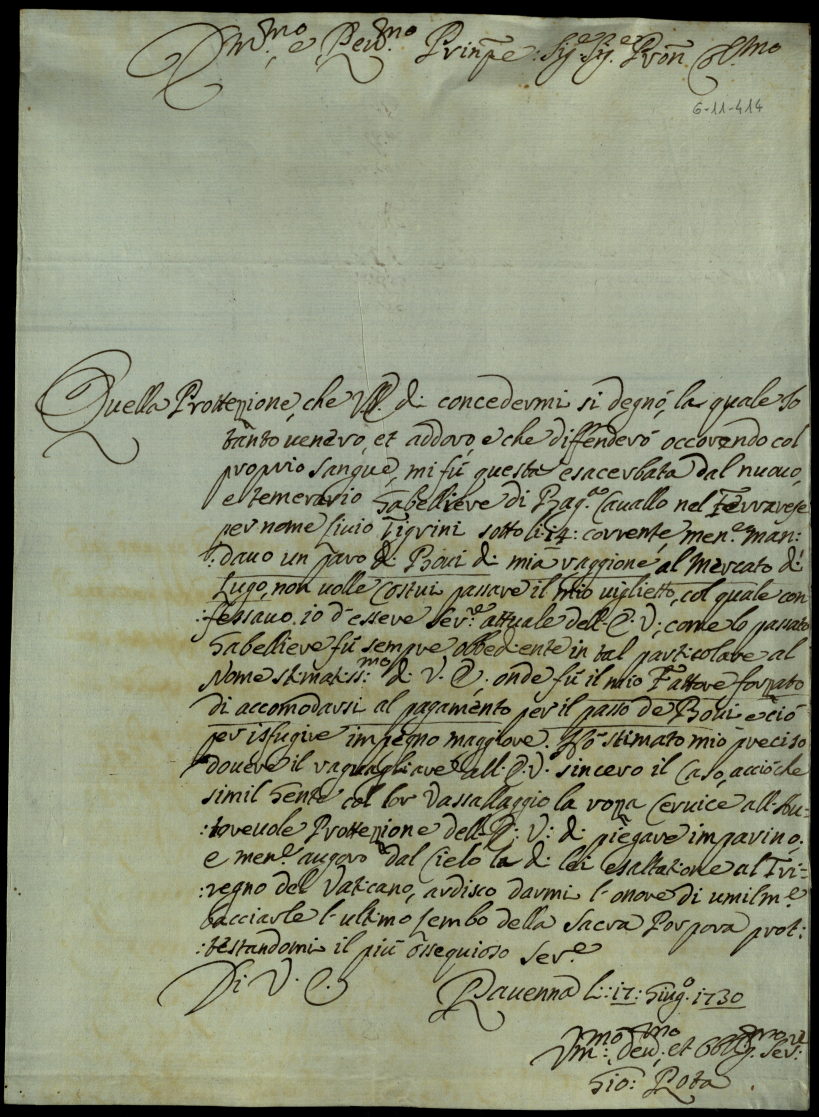 Em.mo e Reu.mo Prin̄pe: Sig.e Sig.e Pron̄ Col.mo
6-11-414
Quella Prottezione, che V.E. di concedermi si degnó, la quale Io
tanto uenero, et addoro, e che diffenderó occorendo col
proprio sangue, mi fú questa esacerbata dal nuouo,
e temerario Gabelliere di Bag.a Cauallo nel Ferrarese
per nome Liuio Tigrini sotto li: 14: corrente, men.e man:
:dauo un paro di Boui di mia raggione al Mercato di
Lugo, non uolle Costui passare il mio uiglietto, col quale con
:fessauo io d'essere Ser.e attuale dell'E. V; come lo passato
Gabelliere fú sempre obbediente in tal particolare al
Nome stimatiss:mo di V. E; onde fú il mio Fattore forzato
di accomodarsi al pagamento per il passo de Boui e ció
per isfugire impegno maggiore. Hó stimato mio preciso
douere il raguagliare all'E. V. sincero il Caso, acció che
simil Gente col lor Vassallaggio la rozza Ceruice all'Au:
:toreuole Prottezione dell'E: V: di piegare imparino;
e men.e auguro dal Cielo la di lei esaltazione al Tri:
:regno del Vaticano, ardisco darmi l'onore di umilm.e
bacciarle l'ultimo lembo della Sacra Porpora prot:
:testandomi il piú ossequioso Ser.e
Di V. E.
Rauenna li: 17: Giug.o 1730
Vm:mo Deu:mo et Obblig.mo Ser.e
Gio: Rota